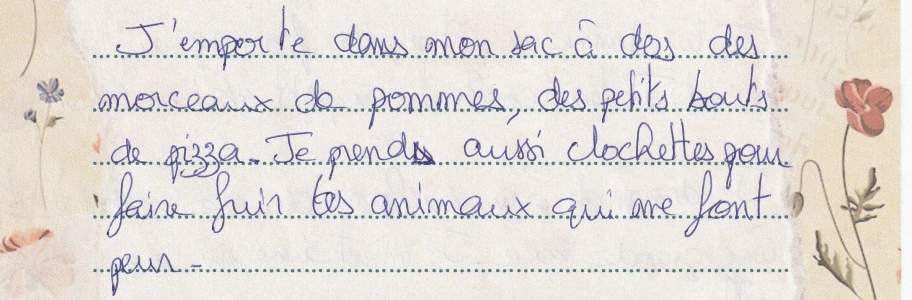 J'emporte dans mon sac à dos des
morceaux de pommes, des petits bouts
de pizza. Je prends aussi clochettes pour
faire fuir les animaux qui me font
peur.